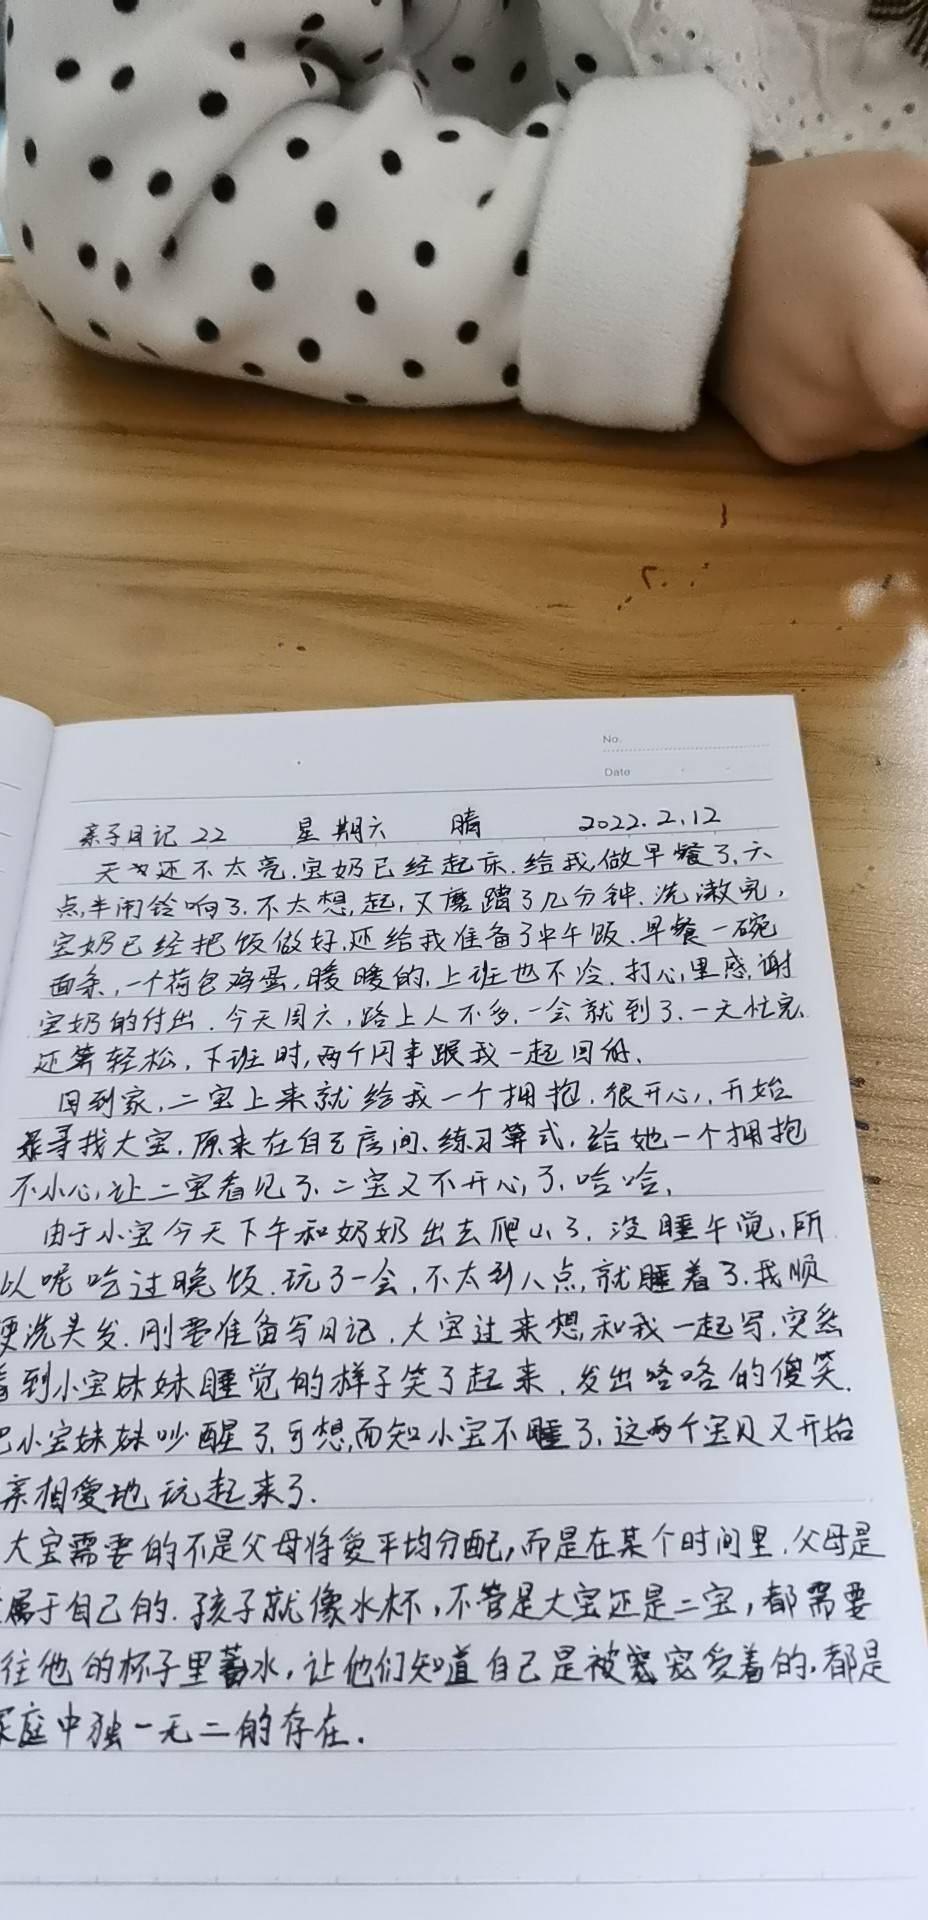 No.
Date
亲子日记 22 星期六 晴 2022.2.12
天还不太亮.宝奶已经起床.给我做早餐了.六
点半闹铃响了.不太想起,又磨蹭了几分钟.洗漱完,
宝奶已经把饭做好,还给我准备了中午饭.早餐一碗
面条,一个荷包鸡蛋,暖暖的,上班也不冷.打心里感谢
宝奶的付出.今天周六,路上人不多.一会就到了.一天忙完
还算轻松,下班时,两个同事跟我一起回
回到家,二宝上来就给我一个拥抱.很开心,开始
寻找大宝.原来在自己房间.练习算式.给她一个拥抱
不小心,让二宝看见了.二宝又不开心了.哈哈.
由于小宝今天下午和奶奶出去爬山了.没睡午觉,所
以呢吃过晚饭.玩了一会,不太到八点,就睡着了.我顺
便洗头发.刚要准备写日记,大宝过来想和我一起写.突然
看到小宝妹妹睡觉的样子笑了起来,发出咯咯的傻笑.
把小宝妹妹吵醒了.可想而知小宝不睡了.这两个宝贝又开始
亲相爱地玩起来了.
大宝需要的不是父母将爱平均分配,而是在某个时间里.父母是
属于自己的.孩子就像水杯,不管是大宝还是二宝,都需要
往他的杯子里蓄水,让他们知道自己是被宠爱着的.都是
家庭中独一无二的存在.